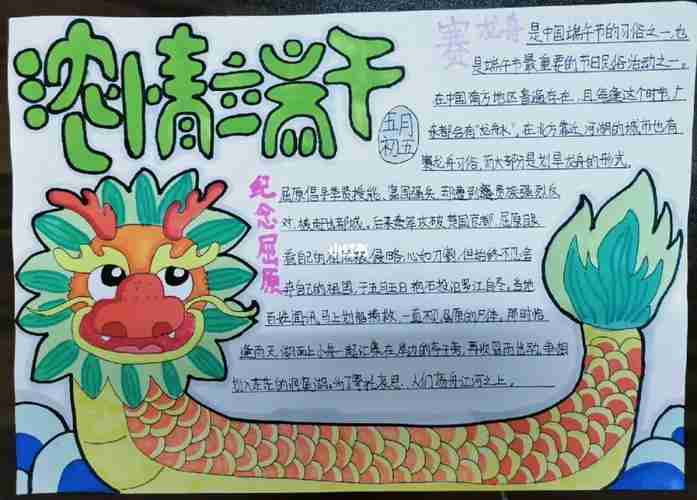 浓情端午
五月
初五
赛龙舟
是中国端午节的习俗之一,也
是端午节最重要的节日民俗活动之一。
在中国南方地区普遍存在,且每逢这个时节,广
东都会有"龙舟水",在北方靠近河湖的城市也有
赛龙舟习俗,而大部分是划旱龙舟的形式。
纪念屈原
屈原倡导举贤授能,富国强兵,却遭到贵族强烈反
对,后来秦军攻破楚国京都,屈原眼
看自己的祖国被侵略,心如刀割,但始终不忍舍
弃自己的祖国,于五月五日抱石投汨罗江自尽,当地
百姓闻讯马上划船捞救,一直不见屈原的尸体,那时恰
逢雨天,湖面上小舟一起汇集在岸边的亭子旁,再次冒雨出动,争相
划入洞庭湖,为了寄托哀思,人们荡舟江河之上。
小红书